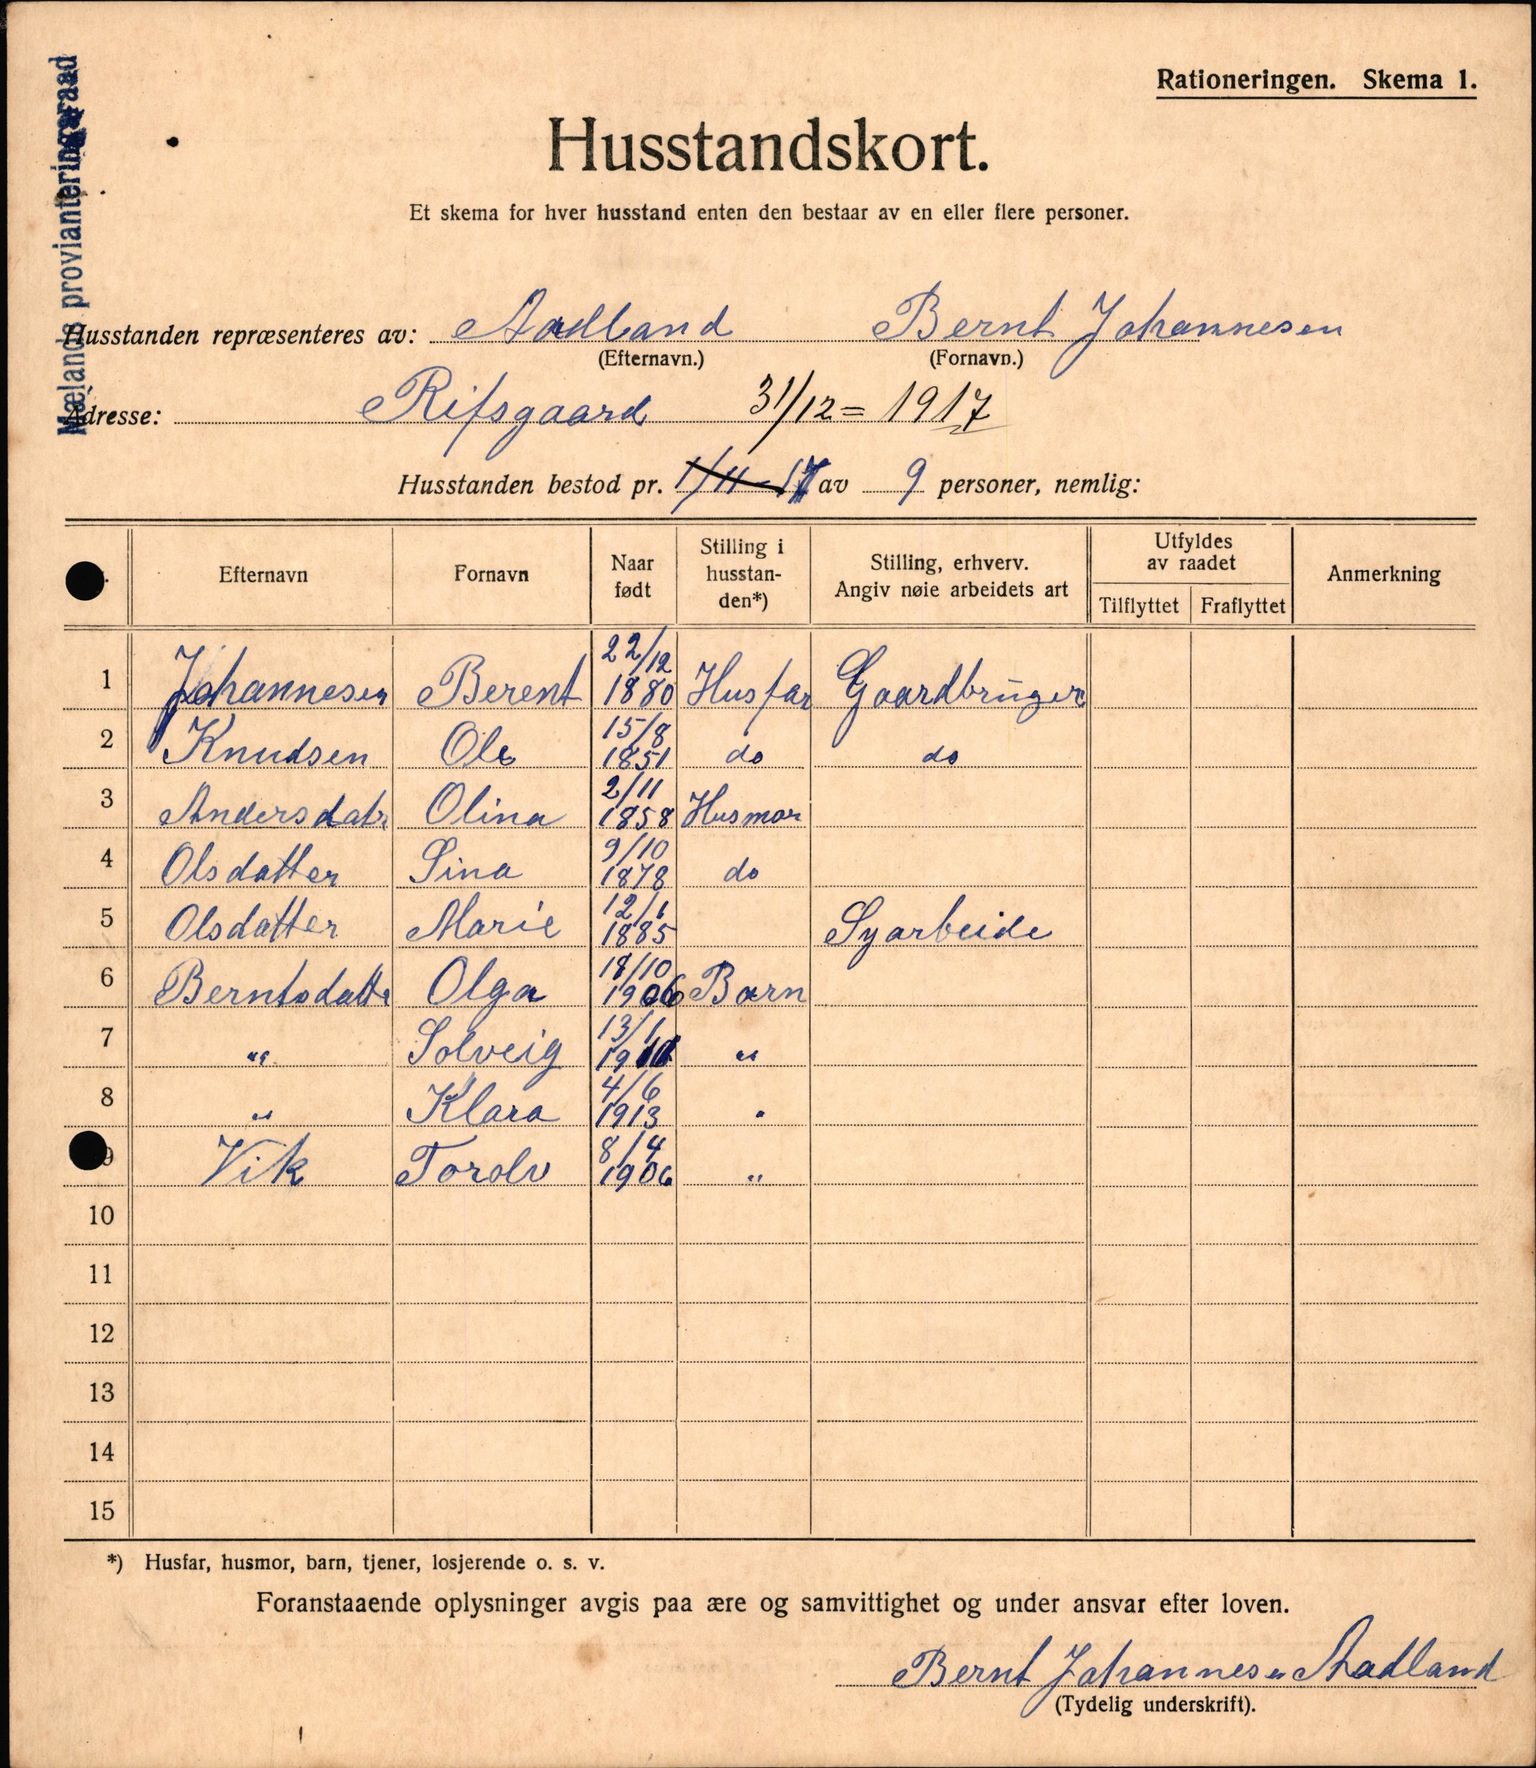 Mælands provianteringsraad
Rationeringen. Skema 1.
Husstandskort.
Et skema for hver husstand enten den bestaar av en eller flere personer.
Husstanden repræsenteres av: Aadland Bernt Johannesen
(Efternavn.) (Fornavn.)
Adresse: Rifsgaard 31/12 = 1917
Husstanden bestod pr. 1/11-17 av 9 personer, nemlig:
Efternavn Fornavn Naar født Stilling i husstanden*) Stilling, erhverv. Angiv nøie arbeidets art Utfyldes av raadet Tilflyttet Fraflyttet Anmerkning
1 Johannesen Berent 22/12 1880 Husfar Gaardbruger
2 Knudsen Ole 15/8 1851 do do
3 Andersdatr Olina 2/11 1858 Husmor
4 Olsdatter Sina 9/10 1878 do
5 Olsdatter Marie 12/1 1885 Syarbeide
6 Berntsdatte Olga 18/10 1906 Barn
7 " Solveig 13/1 1911 "
8 " Klara 4/6 1913 "
9 Vik Torolv 8/4 1906 "
10
11
12
13
14
15
*) Husfar, husmor, barn, tjener, losjerende o. s. v.
Foranstaaende oplysninger avgis paa ære og samvittighet og under ansvar efter loven.
Bernt Johannesen Aadland
(Tydelig underskrift).